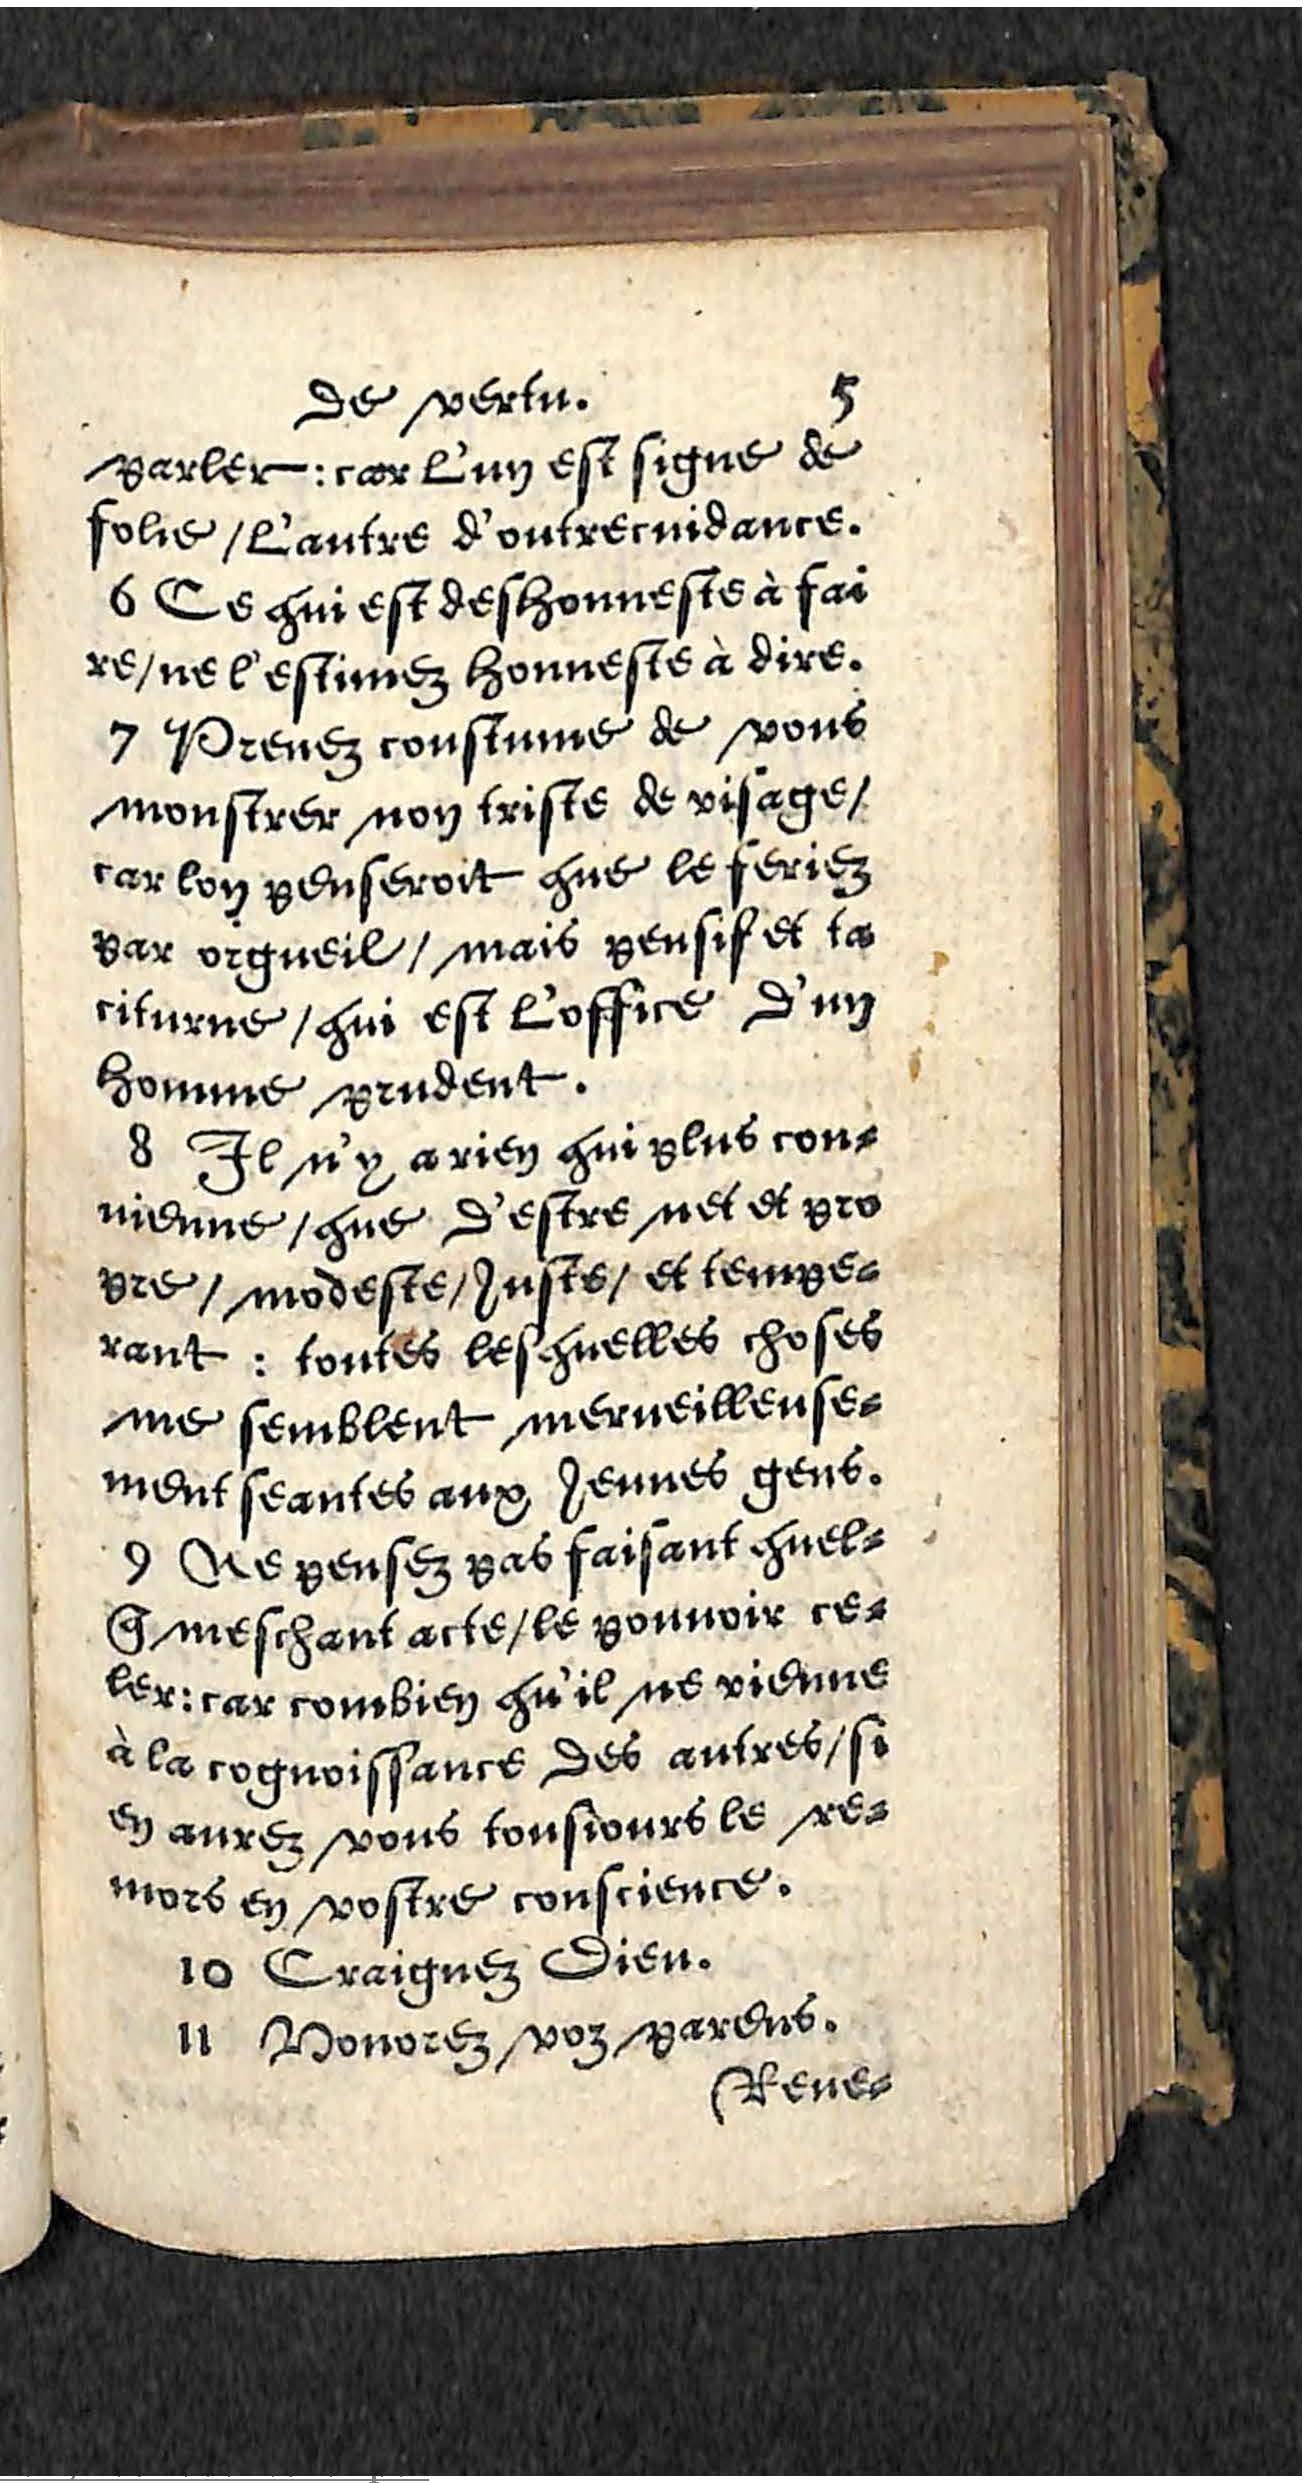 de vertu. 5
parler: car l'un est signe de
folie / l'autre d'outrecuidance.
6 Ce qui est deshonneste à fai
re / ne l'estimez honneste à dire.
7 Prenez coustume de vous
monstrer non triste de visage /
car lon penseroit que le feriez
par orgueil / mais pensif et ta
citurne / qui est l'office d'un
homme prudent.
8 Il n'y a rien qui plus con-
uienne / que d'estre net et pro
pre / modeste / Juste / et tempe-
rant : toutes lesquelles choses
me semblent merueilleuse-
ment seantes aux Jeunes gens.
9 Ne pensez pas faisant quel-
q meschant acte / le pouuoir ce-
ler: car combien qu'il ne vienne
à la cognoissance des autres / si
en aurez vous tousiours le re-
mors en vostre conscience.
10 Craignez Dieu.
11 Honorez voz parens.
Reue-